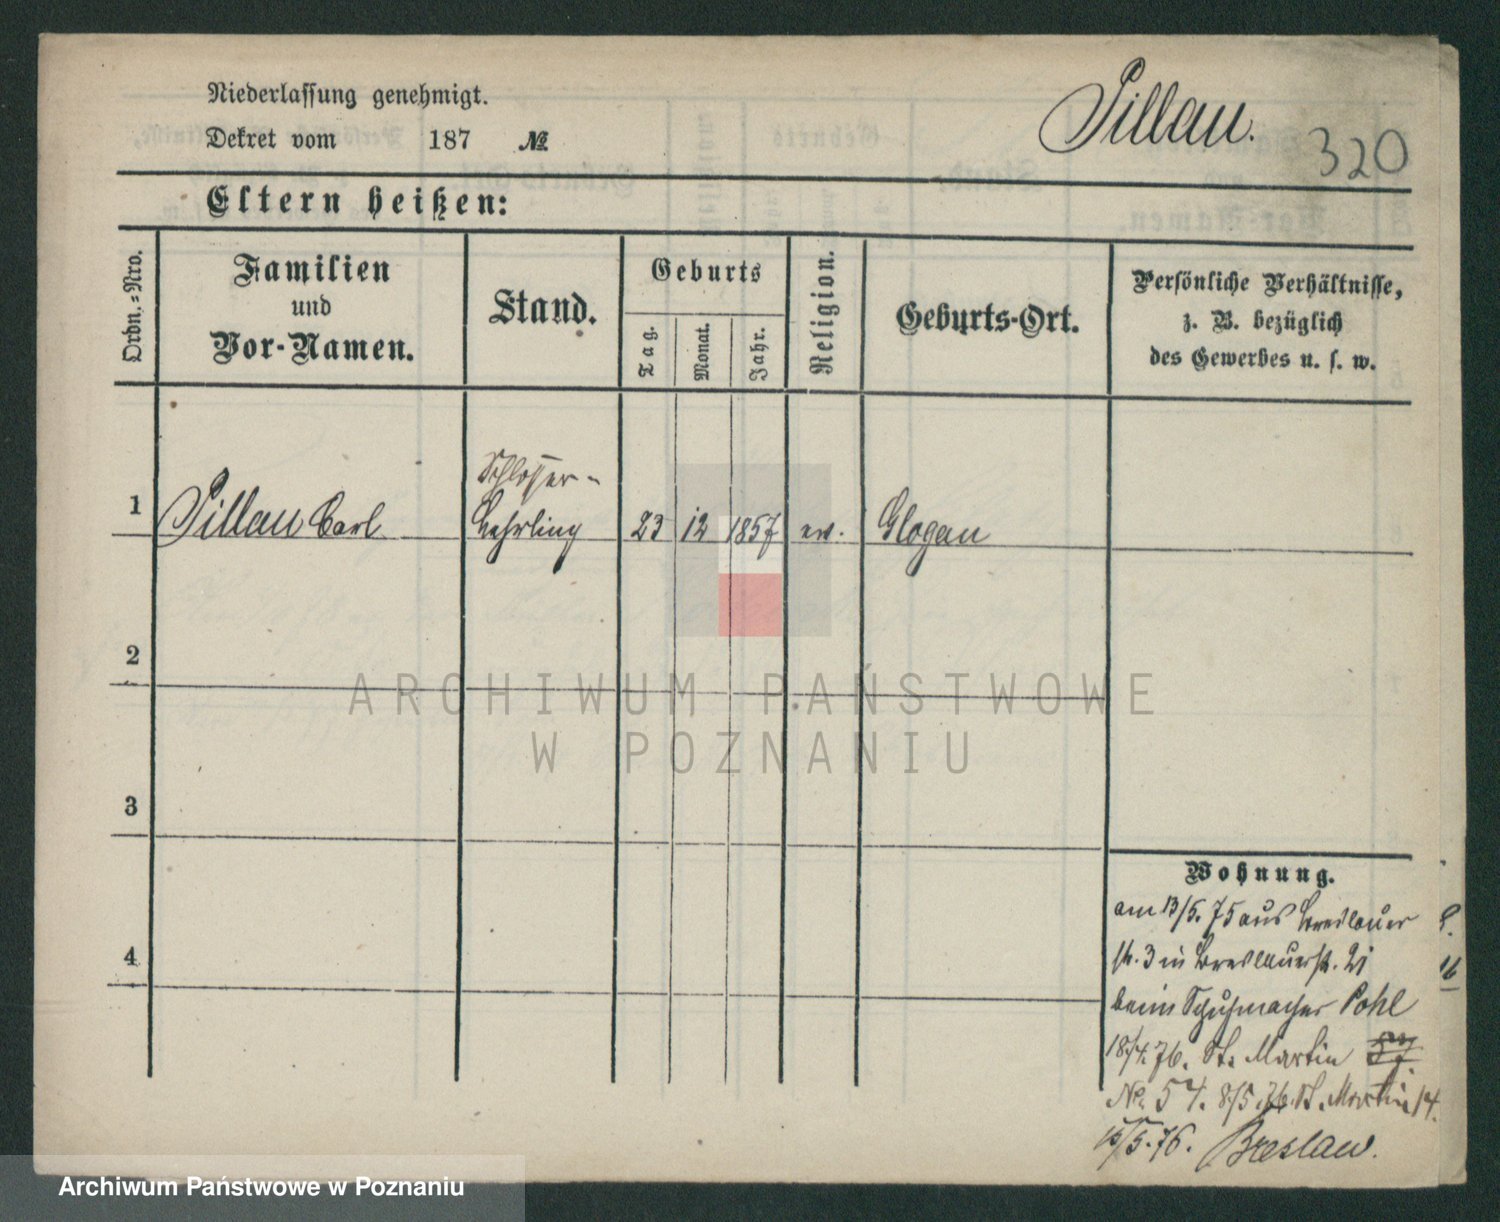 Niederlassung genehmigt.
Dekret vom 187 №
Pillau.
320
Eltern heißen:
Ordn.=Nro.
Familien
und
Vor-Namen.
Stand.
Geburts
Tag.
Monat.
Jahr.
Religion.
Geburts-Ort.
Persönliche Verhältnisse,
z. B. bezüglich
des Gewerbes u. s. w.
1 Pillau Carl Schlosser-
Lehrling 23 12 1857 ev. Glogau
2
3
4
Wohnung.
am 13/5. 75 aus Breslauer
str. 3 in Breslauerstr. 21
beim Schuhmacher Pohl
18/4. 76. St. Martin 57.
No. 54. 8/5. 76. St. Martin 14.
15/5. 76. Breslau.
16
ARCHIWUM PAŃSTWOWE
W POZNANIU
Archiwum Państwowe w Poznaniu